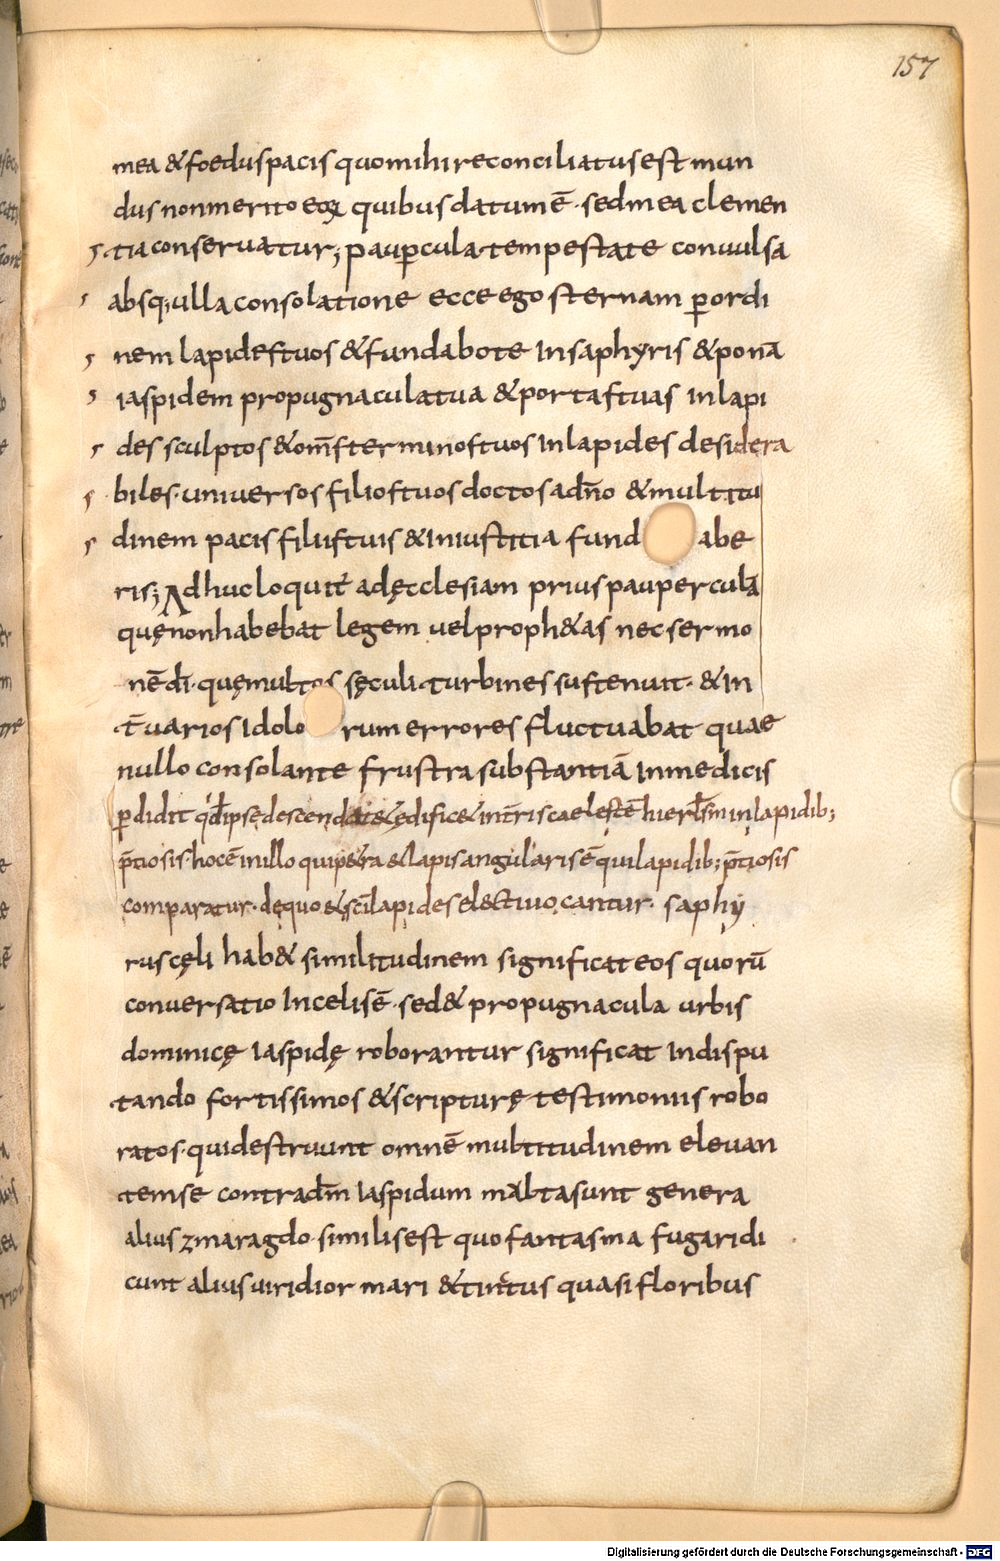 157
mea & foedus pacis quo mihi reconciliatus est mun
dus non merito eoꝝ quibus datum ē · sed mea clemen
tia conservatur; paup̱cula tempestate convulsa
absq; ulla consolatione ecce ego sternam p̱ ordi
nem lapides tuos & fundabo te In saphyris & ponā
iaspidem propugnacula tua & portas tuas In lapi
des sculptos & om̄s terminos tuos In lapides desidera
biles · universos filios tuos doctos a dn̄o & multitu
dinem pacis filiis tuis & In iustitia fund abe
ris; Adhuc loquit̄ ad ęcclesiam prius paupercula
quę non habebat legem vel proph&as nec sermo
nē dī · quę multos sęculi turbines sustenuit · & In
t̄ varios Idolo rum errores fluctuabat quae
nullo consolante frustra substantiā In medicis
p̱didit qđ ipse descendat & ędific& int̄ris caelestē hierl̄sm in lapidib;
p̄tiosis hoc ē in illo qui petra & lapis angularis ē qui lapidib; p̄tiosis
comparatur · de quo & sc̄i lapides elect vocantur · saphy
rus cęli hab& similitudinem significat eos quorū
conversatio In celis ē · sed & propugnacula urbis
dominicę Iaspidę roborantur significat In dispu
tando fortissimos & scripturę testimoniis robo
ratos · qui destruunt omnē multitudinem elevan
tem se contra dm̄ Iaspidum multa sunt genera
alius zmaragdo similis est quo fantasma fugari di
cunt alius viridior mari & tinctus quasi floribus
Digitalisierung gefördert durch die Deutsche Forschungsgemeinschaft - DFG